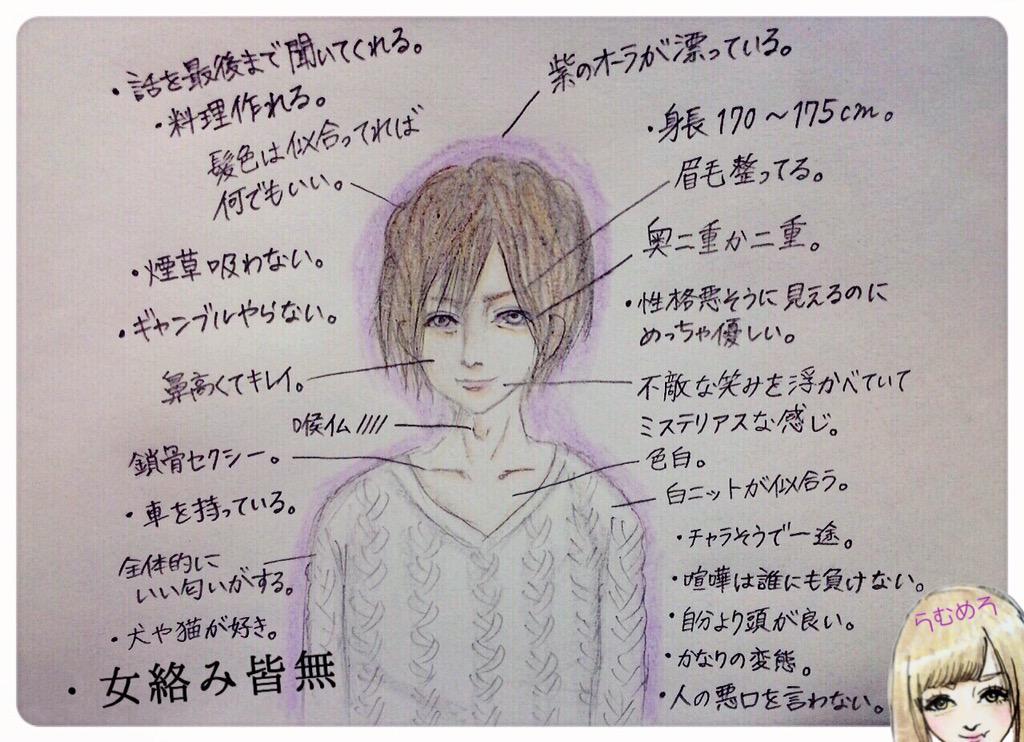 ・話を最後まで聞いてくれる。
・料理作れる。
髪色は似合ってれば
何でもいい。
・煙草吸わない。
・ギャンブルやらない。
鼻高くてキレイ。
喉仏////
鎖骨セクシー。
・車を持っている。
全体的に
いい匂いがする。
・犬や猫が好き。
・女絡み皆無
紫のオーラが漂っている。
・身長170〜175cm。
眉毛整ってる。
奥二重か二重。
・性格悪そうに見えるのに
めっちゃ優しい。
不敵な笑みを浮かべていて
ミステリアスな感じ。
色白。
白ニットが似合う。
・チャラそうで一途。
・喧嘩は誰にも負けない。
・自分より頭が良い。
・かなりの変態。
・人の悪口を言わない。
うむめろ